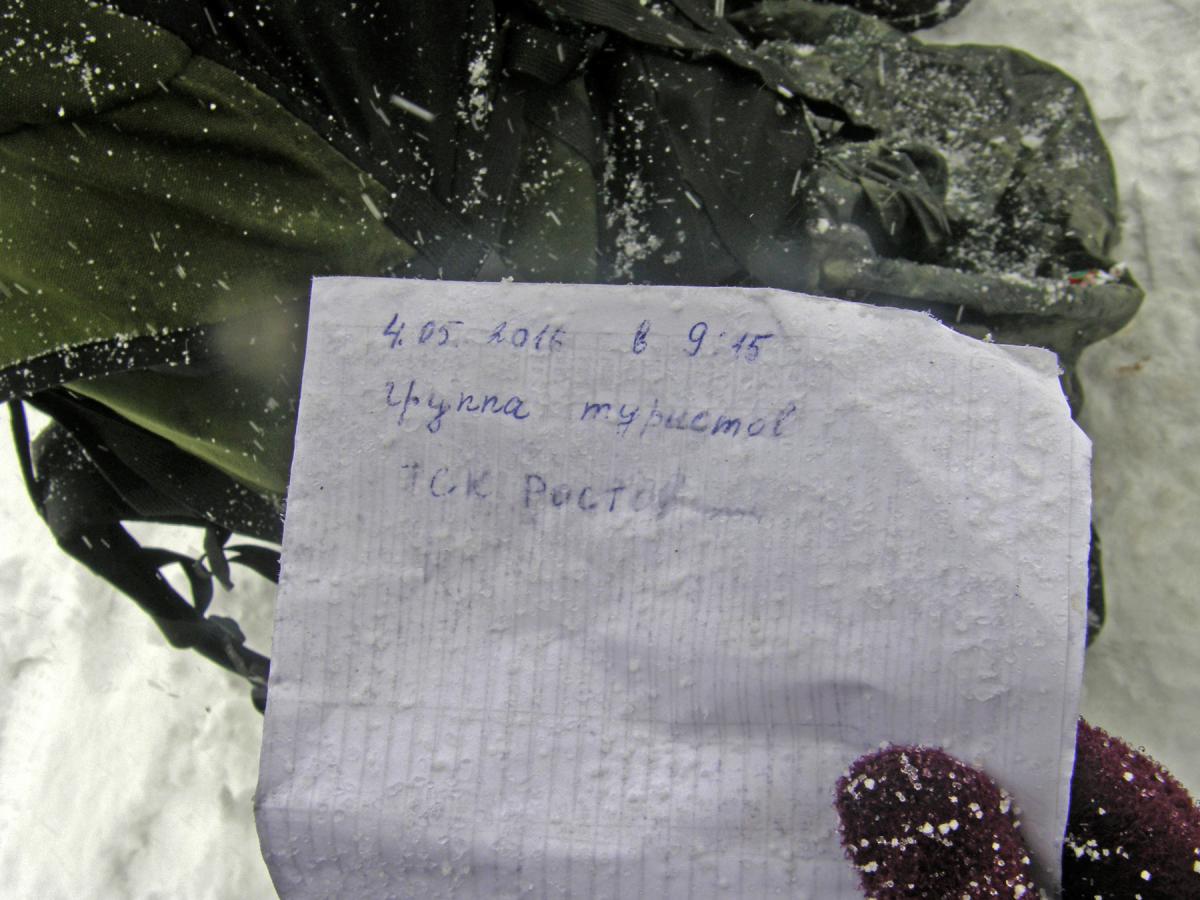 4.05. 2016 в 9:15
Группа туристов
ТСК Ростов